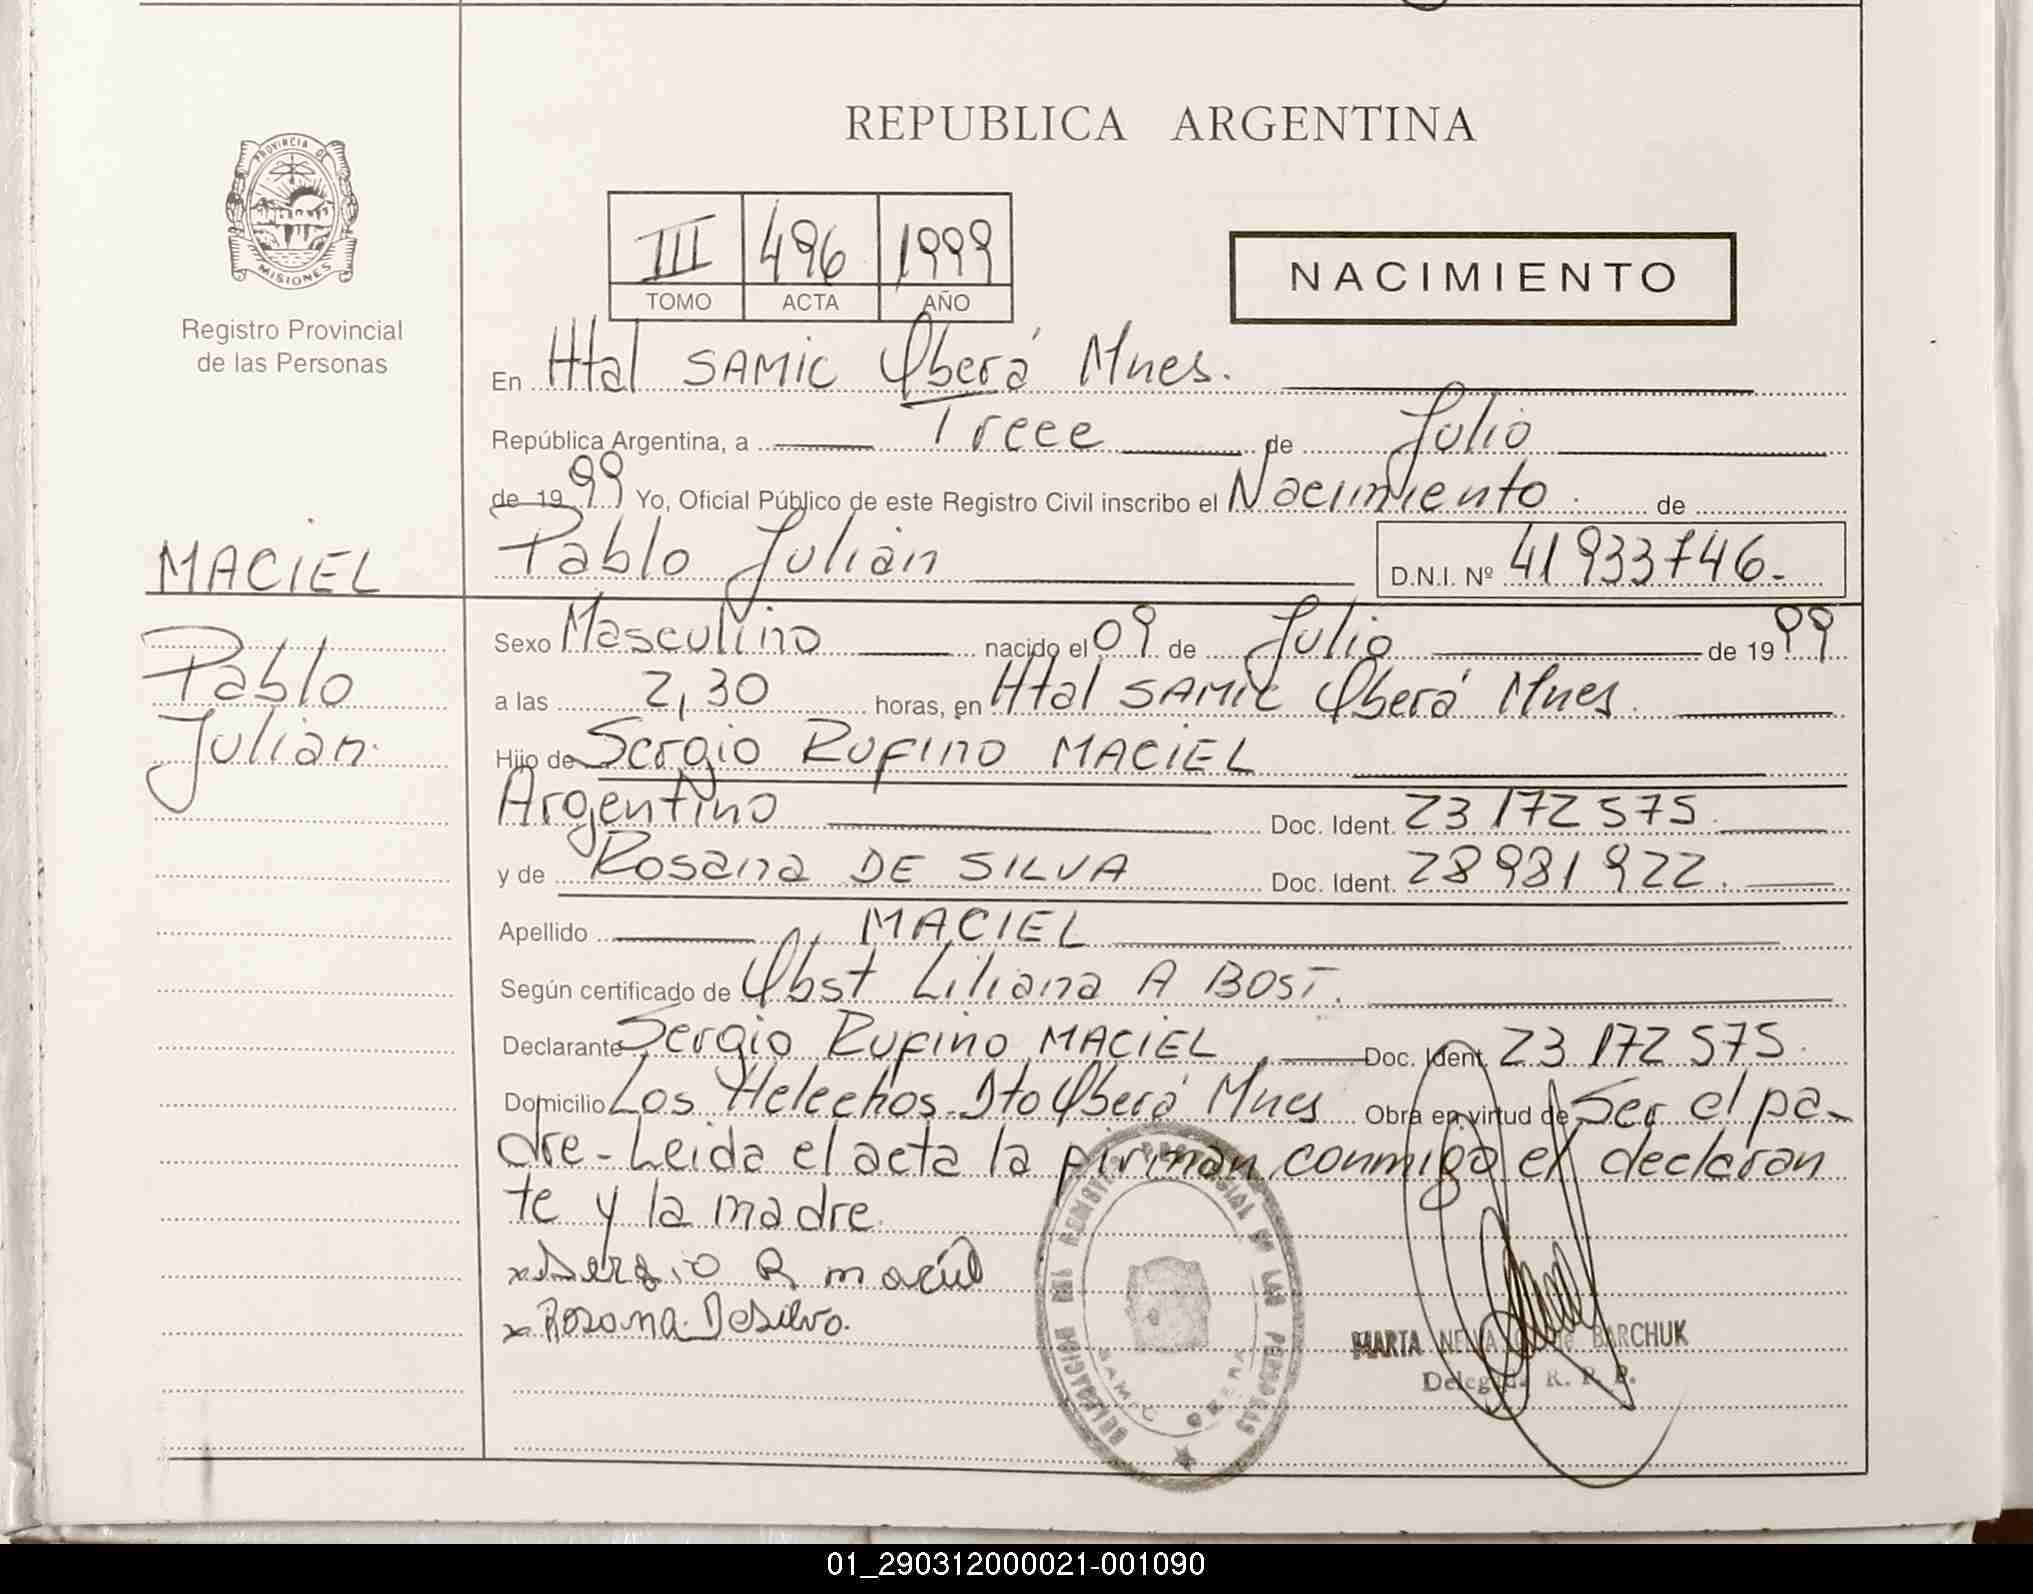 REPUBLICA ARGENTINA
PROVINCIA DE
MISIONES
Registro Provincial
de las Personas
III 496 1999
TOMO ACTA AÑO
NACIMIENTO
En Htal SAMIC Oberá Mnes.
República Argentina, a Trece de Julio
de 1999 Yo, Oficial Público de este Registro Civil inscribo el Nacimiento de
Pablo Julián D.N.I. Nº 41933746.
MACIEL
Pablo
Julián.
Sexo Masculino nacido el 09 de Julio de 1999
a las 2,30 horas, en Htal SAMIC Oberá Mnes.
Hijo de Sergio Rufino MACIEL
Argentino Doc. Ident. 23172575.
y de Rosana DE SILVA Doc. Ident. 28981922.
Apellido MACIEL
Según certificado de Obst Liliana A BOST.
Declarante Sergio Rufino MACIEL Doc. Ident. 23172575.
Domicilio Los Helechos-Dto Oberá Mnes Obra en virtud de Ser el pa-
dre-Leida el acta la firman conmigo el declaran
te y la madre.
x Sergio R maciel
x Rosana Desilva.
DELEGACION DEL REGISTRO PROVINCIAL DE LAS PERSONAS
SAMIC OBERA
MARTA BARCHUK
R. P. P.
01_290312000021-001090